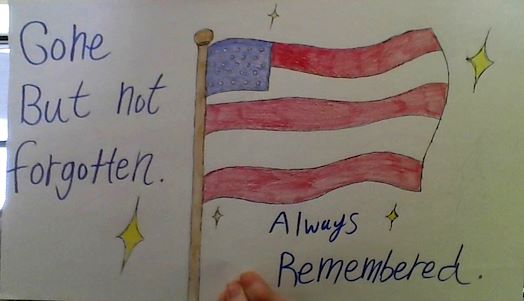 Gone
But not
forgotten.
Always
Remembered.